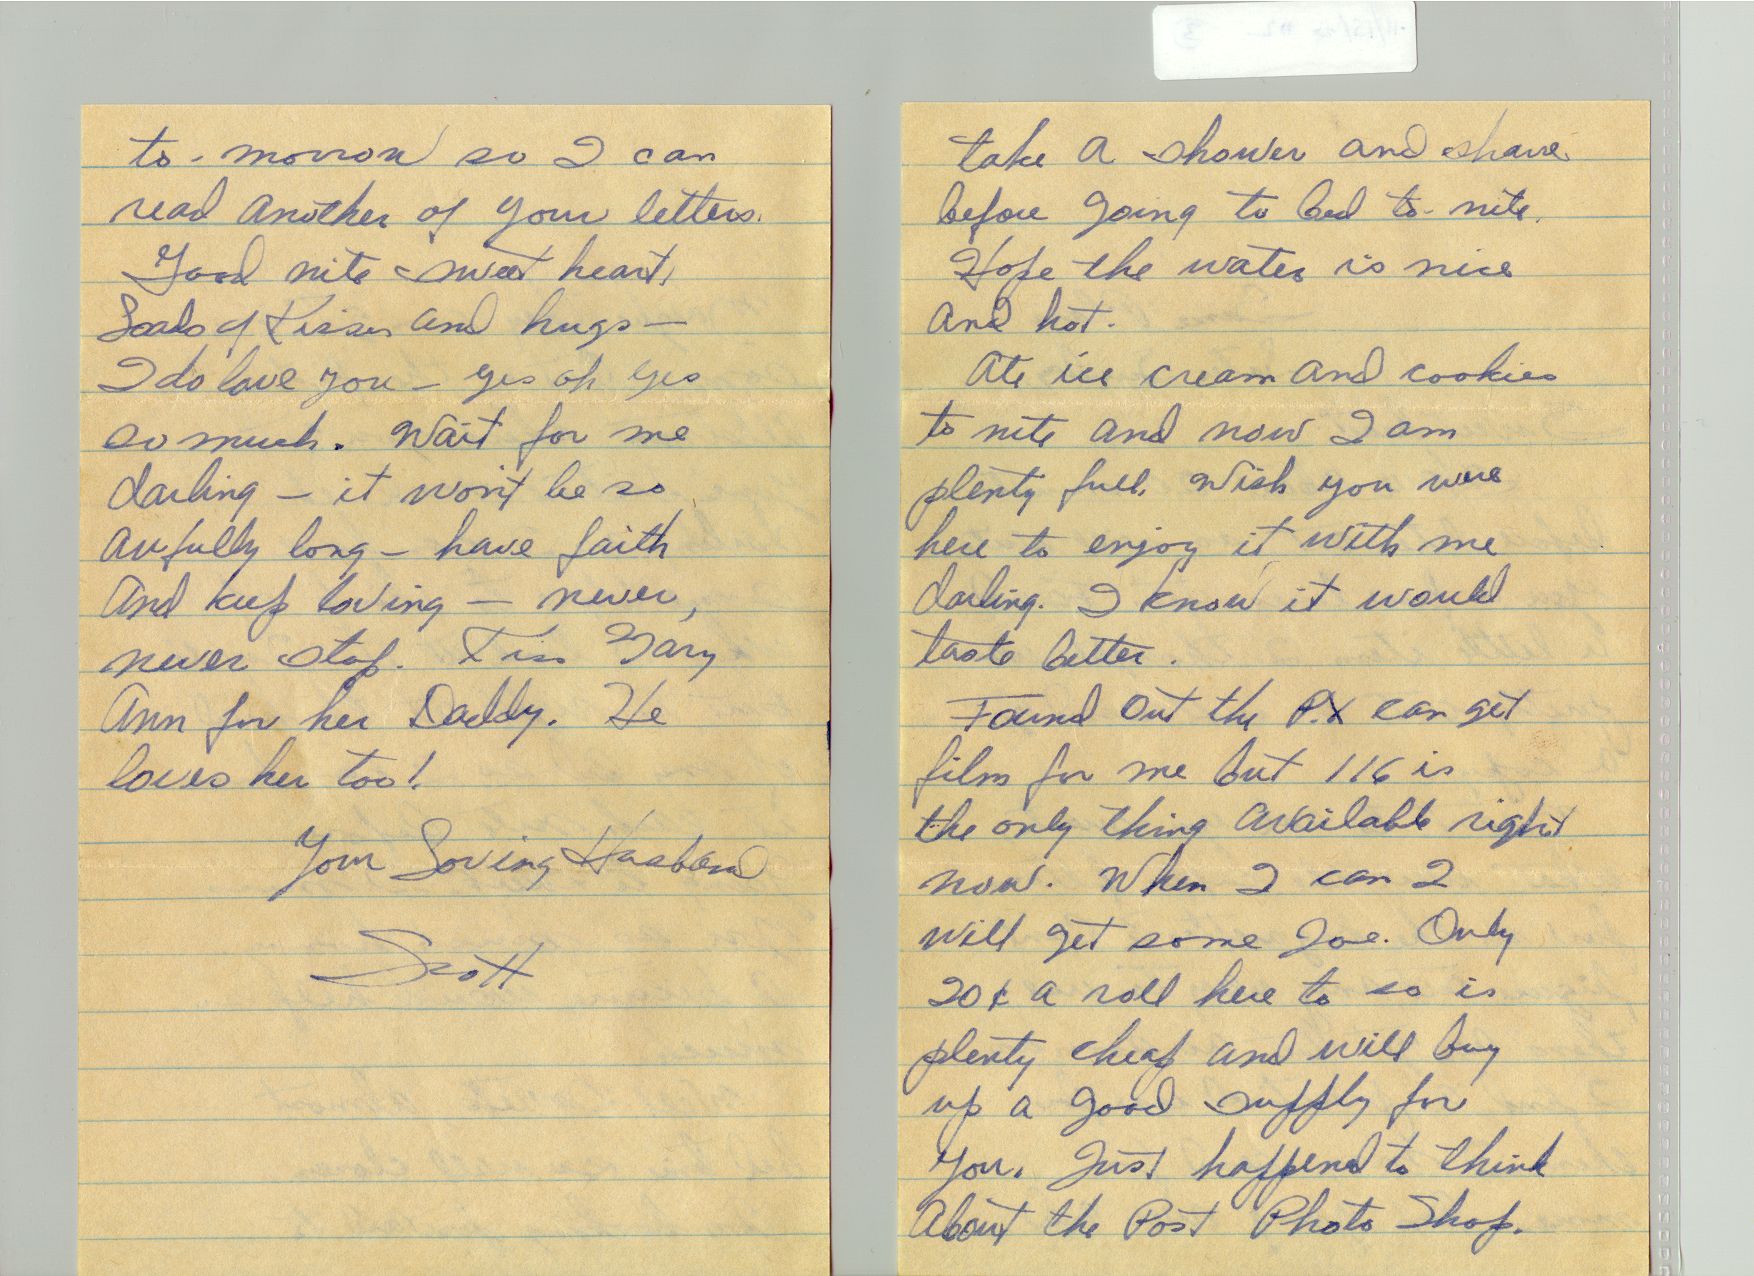 to-morrow so I can
read another of your letters.
Good nite sweet heart,
Loads of Kisses and hugs —
I do love you — yes oh yes
so much. Wait for me
darling — it won't be so
awfully long — have faith
And keep loving — never,
never stop. Kiss Gary
Ann for her Daddy. He
loves her too!
Your Loving Husband
Scott
take a shower and shave
before going to bed to-nite.
Hope the water is nice
and hot.
Ate ice cream and cookies
to nite and now I am
plenty full. Wish you were
here to enjoy it with me
darling. I know it would
taste better.
Found out the P.X can get
film for me but 116 is
the only thing available right
now. When I can I
will get some Joe. Only
20¢ a roll here to so is
plenty cheap and will buy
up a good supply for
you. Just happened to think
About the Post Photo Shop.